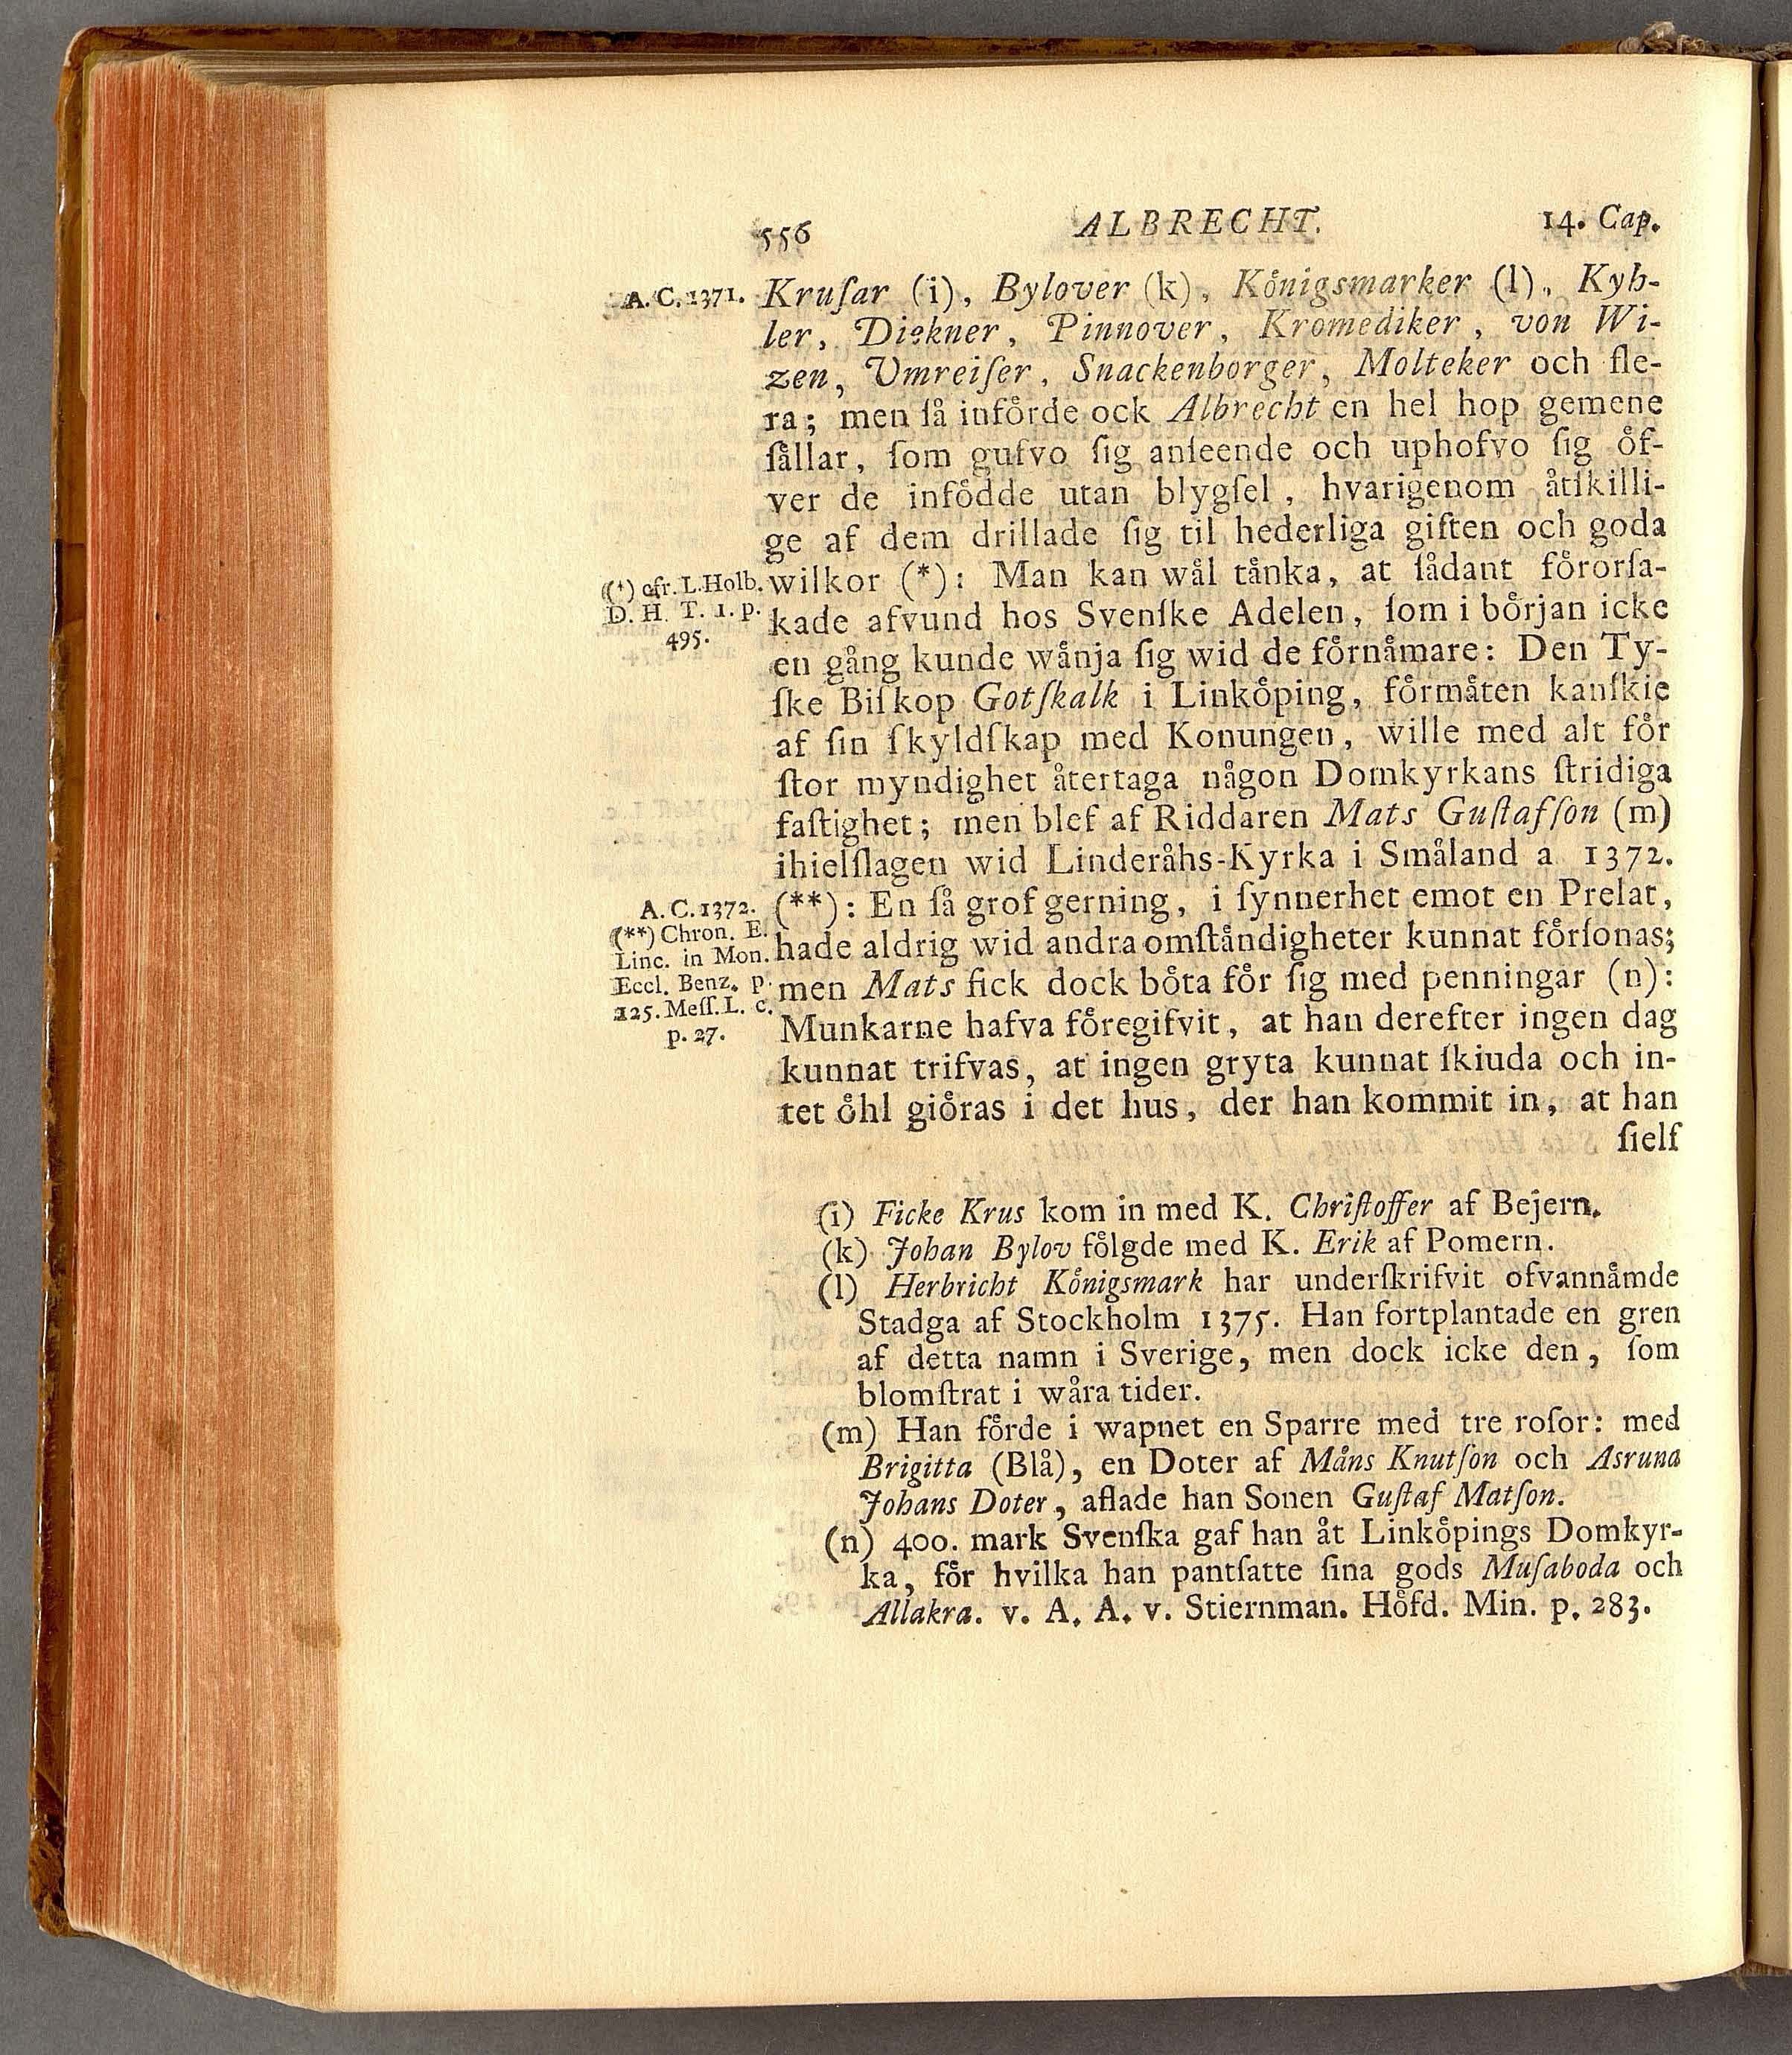 556 ALBRECHT. 14. Cap.
A. C. 1371.
Kruſar (i), Bylover (k), Königsmarker (l), Kyh-
ler, Diekner, Pinnover, Kromediker, von Wi-
zen, Vmreiſer, Snackenborger, Molteker och fle-
ra; men ſå införde ock Albrecht en hel hop gemene
ſällar, ſom gufvo ſig anſeende och uphofvo ſig öf-
ver de infödde utan blygſel, hvarigenom åtſkilli-
ge af dem drillade ſig til hederliga giften och goda
wilkor (*): Man kan wäl tänka, at ſådant förorſa-
kade afvund hos Svenſke Adelen, ſom i början icke
en gång kunde wänja ſig wid de förnämare: Den Ty-
ſke Biſkop Gotſkalk i Linköping, förmäten kanſkie
af ſin ſkyldſkap med Konungen, wille med alt för
ſtor myndighet återtaga någon Domkyrkans ſtridiga
faſtighet; men blef af Riddaren Mats Guſtafſon (m)
ihielſlagen wid Linderåhs-Kyrka i Småland a 1372.
(**): En ſå grof gerning, i ſynnerhet emot en Prelat,
hade aldrig wid andra omſtändigheter kunnat förſonas;
men Mats fick dock böta för ſig med penningar (n):
Munkarne hafva föregifvit, at han derefter ingen dag
kunnat trifvas, at ingen gryta kunnat ſkiuda och in-
tet öhl giöras i det hus, der han kommit in, at han
ſielf
(*) cfr. L. Holb.
D. H. T. 1. p.
495.
A. C. 1372.
(**) Chron. E.
Linc. in Mon.
Eccl. Benz. p.
125. Meſſ. L. c.
p. 27.
(i) Ficke Krus kom in med K. Chriſtoffer af Bejern.
(k) Johan Bylov fölgde med K. Erik af Pomern.
(l) Herbricht Königsmark har underſkrifvit ofvannämde
Stadga af Stockholm 1375. Han fortplantade en gren
af detta namn i Sverige, men dock icke den, ſom
blomſtrat i wåra tider.
(m) Han förde i wapnet en Sparre med tre roſor: med
Brigitta (Blå), en Doter af Måns Knutſon och Asruna
Johans Doter, aflade han Sonen Guſtaf Matſon.
(n) 400. mark Svenſka gaf han åt Linköpings Domkyr-
ka, för hvilka han pantſatte ſina gods Muſaboda och
Allakra. v. A. A. v. Stiernman. Höfd. Min. p. 283.